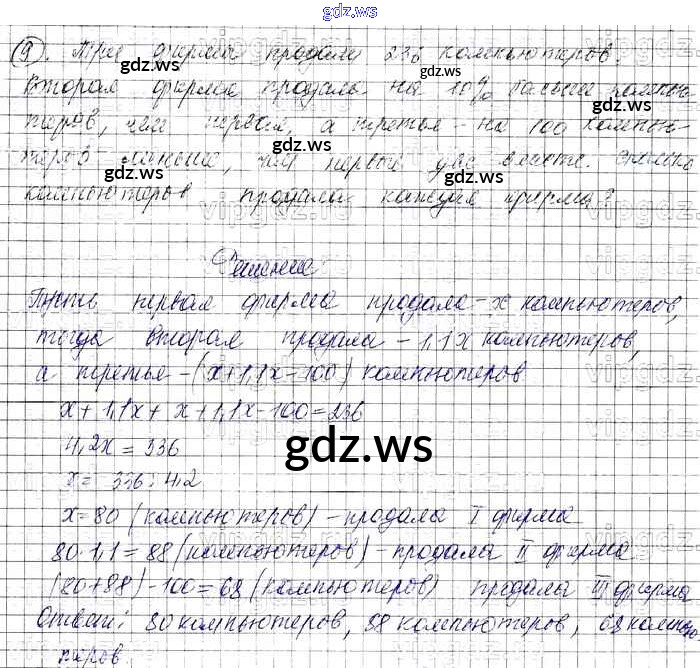 gdz.ws
9). Три фирмы продали 236 компьютеров.
Вторая фирма продала на 10% больше компью-
теров, чем первая, а третья - на 100 компью-
теров меньше, чем первые две вместе. Сколько
компьютеров продала каждая фирма?
Решение
Пусть первая фирма продала - x компьютеров,
тогда вторая продала - 1,1x компьютеров,
а третья - (x+1,1x-100) компьютеров
x + 1,1x + x + 1,1x - 100 = 236
4,2x = 336
x = 336 : 4,2
gdz.ws
x = 80 (компьютеров) - продала I фирма
80 · 1,1 = 88 (компьютеров) - продала II фирма
(80+88) - 100 = 68 (компьютеров) продала III фирма
Ответ: 80 компьютеров, 88 компьютеров, 68 компью-
теров.
gdz.ws